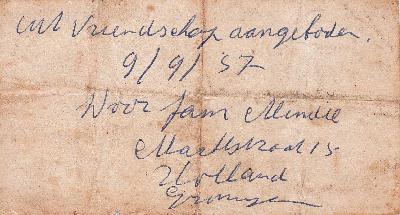 uit Vriendschap aangeboden.
9/9/57
Door fam Mendie
Marktstraat 15
Holland
Groningen